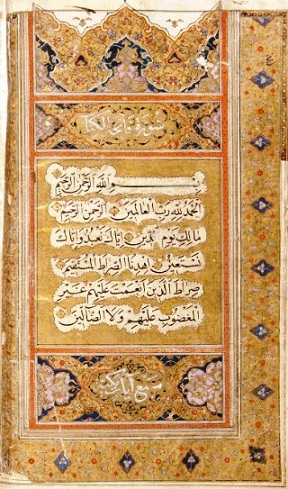 سورة فاتحة الكتاب
بسم الله الرحمن الرحيم
الحمد لله رب العالمين الرحمن الرحيم
مالك يوم الدين إياك نعبد وإياك
نستعين اهدنا الصراط المستقيم
صراط الذين أنعمت عليهم غير
المغضوب عليهم ولا الضالين
سبع آيات مكية